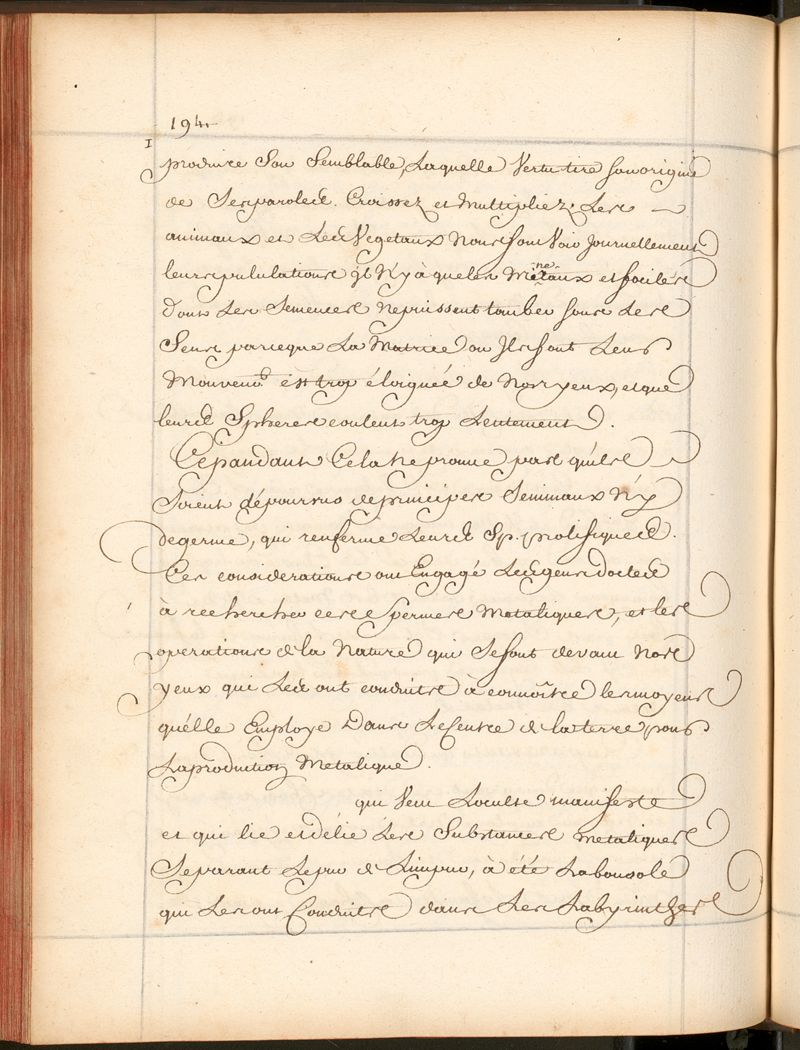 194.
I
produire Son Semblable, Laquelle Vertu tire son origine
de Ses parolles. Croissez et Multipliez. Les
animaux et Les Vegetaux Nous font Voir Journellement
leurs pululations, il N'y à que les Mineraux et fociles
Dont Les Semences Ne puissent tomber sous Les
Sens parceque La Matrice ou Ils font Leur
Mouvemt est trop éloignée de Nos yeux, et que
leurs Spheres coulent trop Lentement.
Cépandant Cela Ne prouve pas qu'ils
Soient dépourvus de principes Seminaux N'y
de germe, qui renferme Leurs Sp. prolifiques.
Ces considerations ont Engagé Les gens doctes
à rechercher ces Spermes Metaliques, et les
operations de la Nature qui Se font devant Nos
yeux qui Les ont conduits à connoître les moyens
qu'élle Employe Dans Le Centre de la terre pour
La production Metalique.
qui Veut L'oculte manifeste
et qui lie et délie Les Substances metaliques
Separant Le pur de L'impur, à été La boussole
qui Les ont Conduits dans Les Labyrinthes